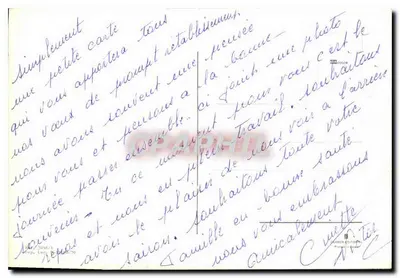 simplement
une petite carte
qui vous apportera tous
nos vœux de prompt rétablissement
nous avons souvent une pensée
pour vous et pensons à la bonne
journée passée ensemble. ci joint une photo
souvenir. En ce moment pour vous c'est le
repos et nous en plein travail. souhaitons
avoir le plaisir de vous voir à l'arrière
saison. souhaitons toute votre
famille en bonne santé
nous vous embrassons
amicalement